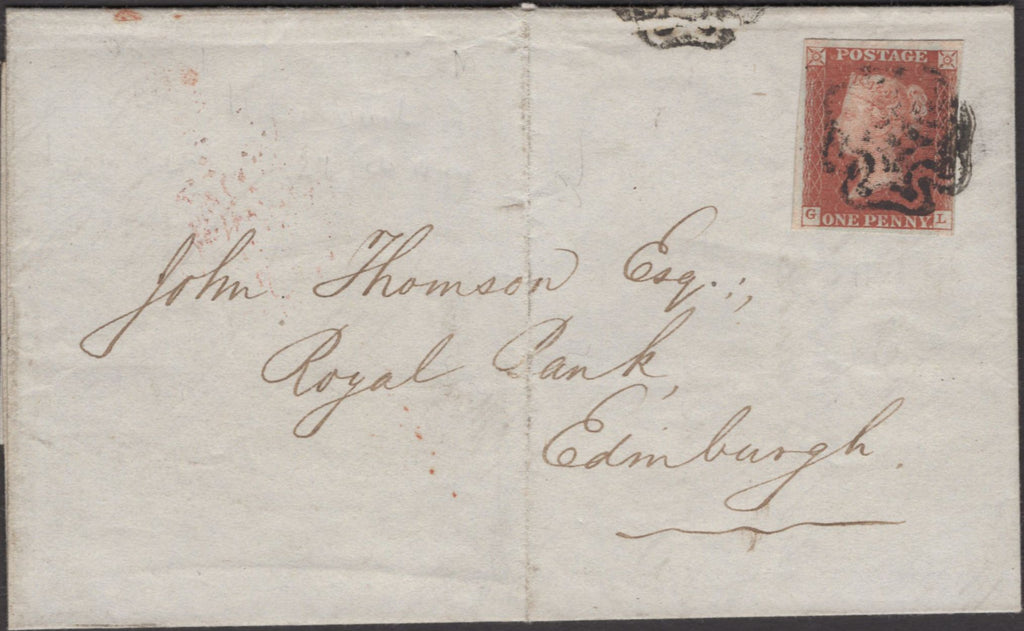 POSTAGE
G L
ONE PENNY.
John Thomson Esq.:,
Royal Bank,
Edinburgh.